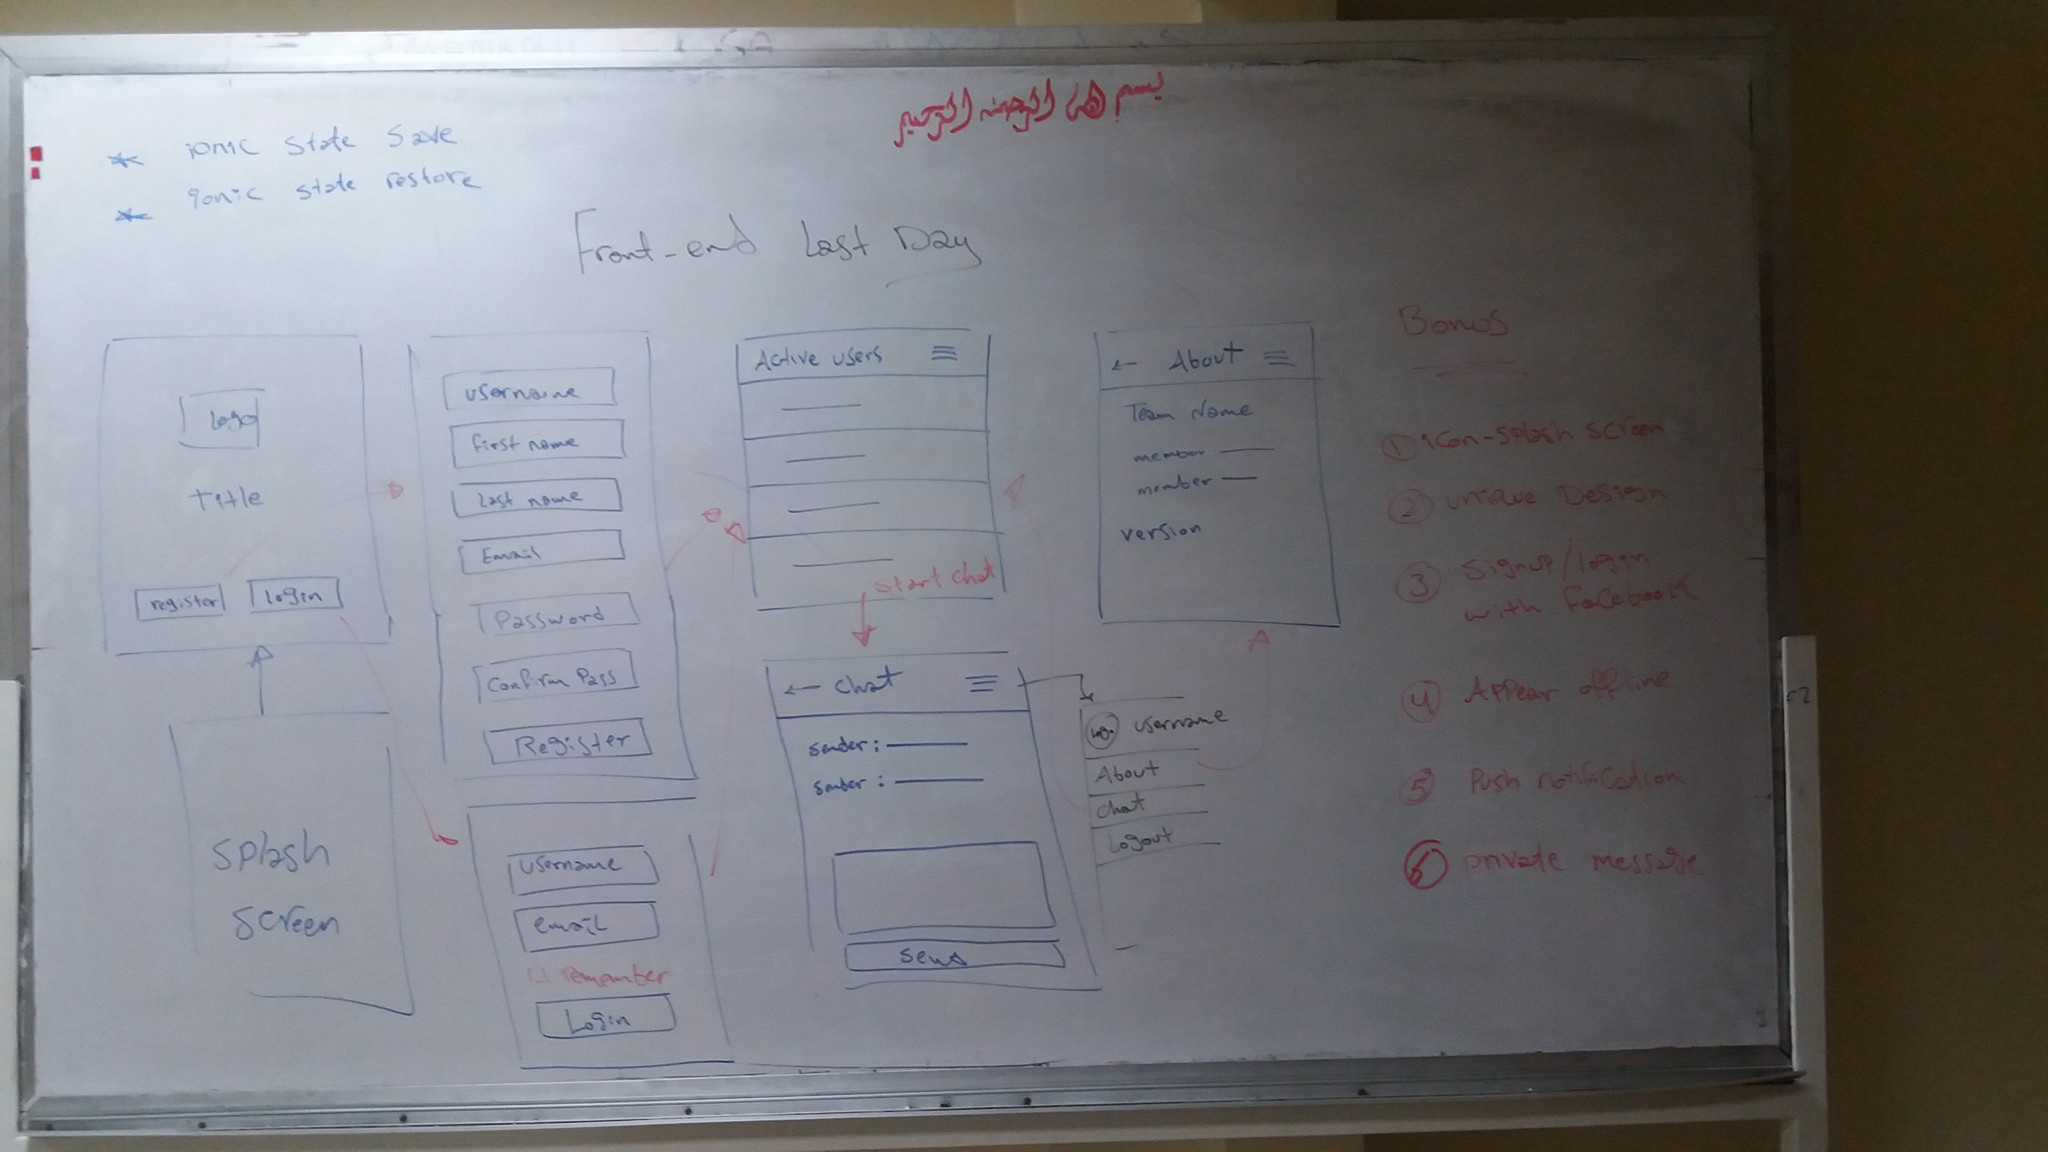 بسم الله الرحمن الرحيم
* ionic state save
* ionic state restore
Front-end Last Day
Logo
Title
register
Login
Splash
Screen
username
first name
Last name
Email
Password
Confirm Pass
Register
username
email
remember
Login
Active users
Start chat
← chat
sender:
sender:
Send
username
About
chat
Logout
← About
Team Name
member
member
version
Bonus
1 icon-splash screen
2 unique Design
3 Signup/login
with facebook
4 Appear offline
5 Push notification
6 private message